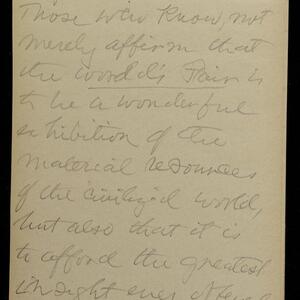 Those who know, not
merely affirm that
the world's Fair is
to be a wonderful
exhibition of the
material resources
of the civilized world,
but also that it is
to afford the greatest
insight ever